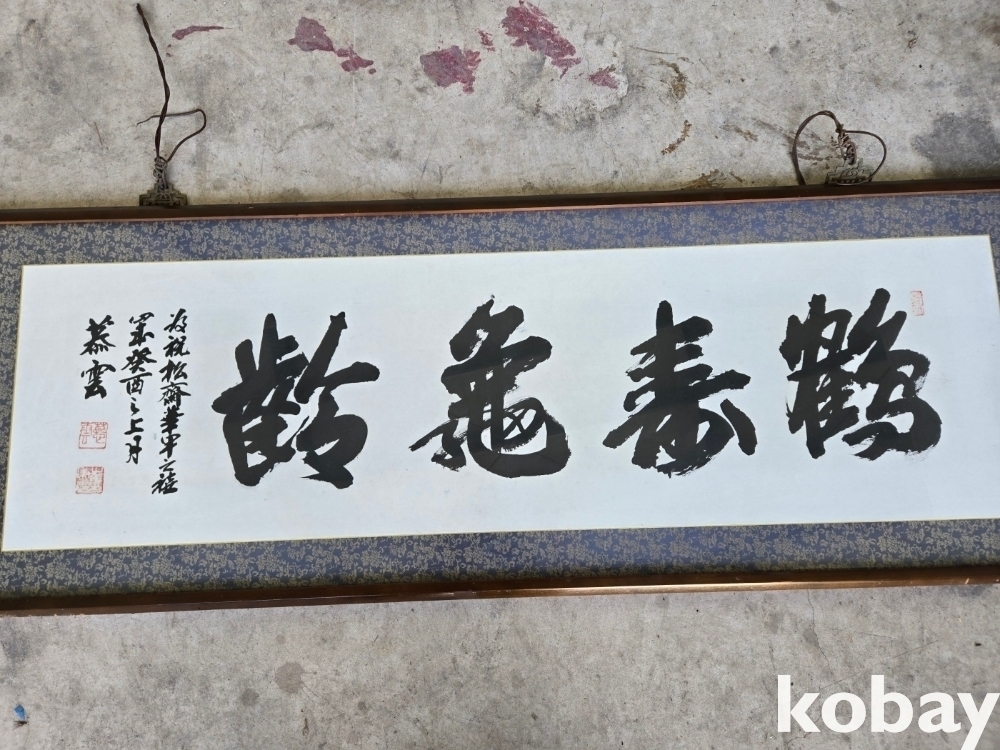 鶴壽龜齡
為祝松齋華甲
癸酉之上月
慕雲
kobay